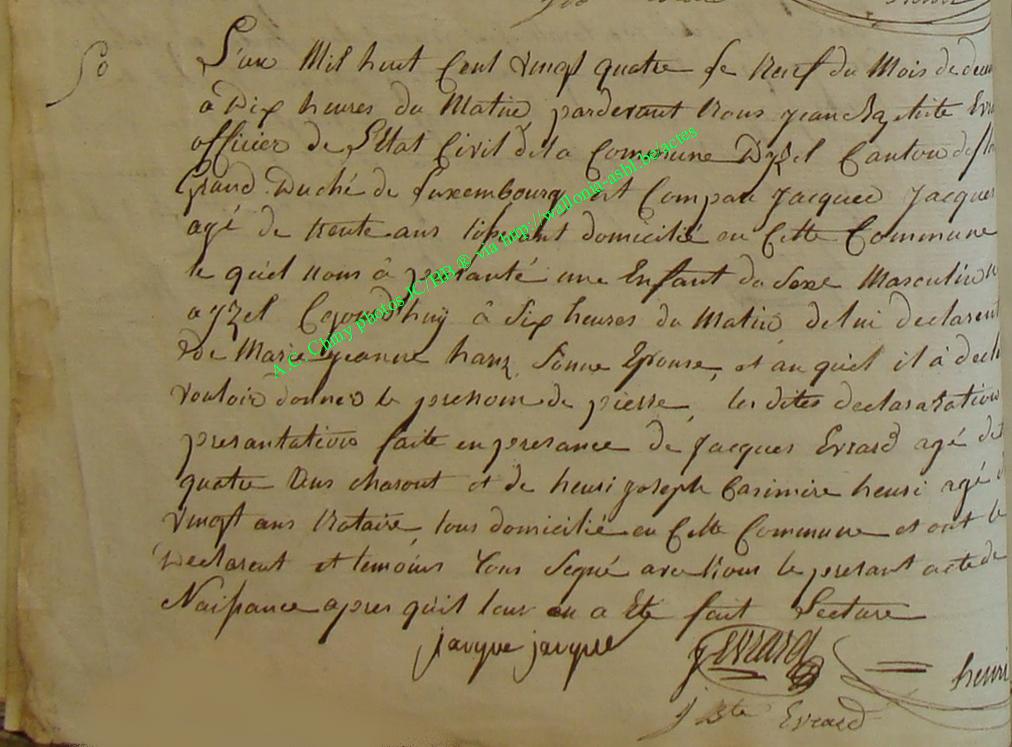 50
L'an Mil huit Cent vingt quatre le Neuf du Mois de
a Dix heures du Matin pardevant Nous jean Baptiste Evra
officier de L'Etat Civil de la Commune D'yzel Canton de
Grand Duché de Luxembourg est Comparu Jacques Jacques
agé de trente ans domicilié en Cette Commune
le quel nous à presanté une Enfant du Sexe Masculin
a yzel Cejourd'huy à Six heures du Matin de lui declarent
& de Marie jeanne hanz Sonne Epouse, et au quel il à decl
vouloir donner le prenom de pierre, les dites declaration
presantation faite en presance de Jacques Evrard agé de
quatre Ans charont et de henri joseph Casimire henri agé
vingt ans Notaire, tous domicilié en Cette Commune et ont le
Declarent et temoins Tous Segné avec Nous le presant acte de
Naissance apres qu'il leur en a Eté fait Lecture
jacque jacque
J Evrard
henri
j Bte Evrard
A.C. Chiny photos IC/BB ® via http://wallonia-asbl.be/actes